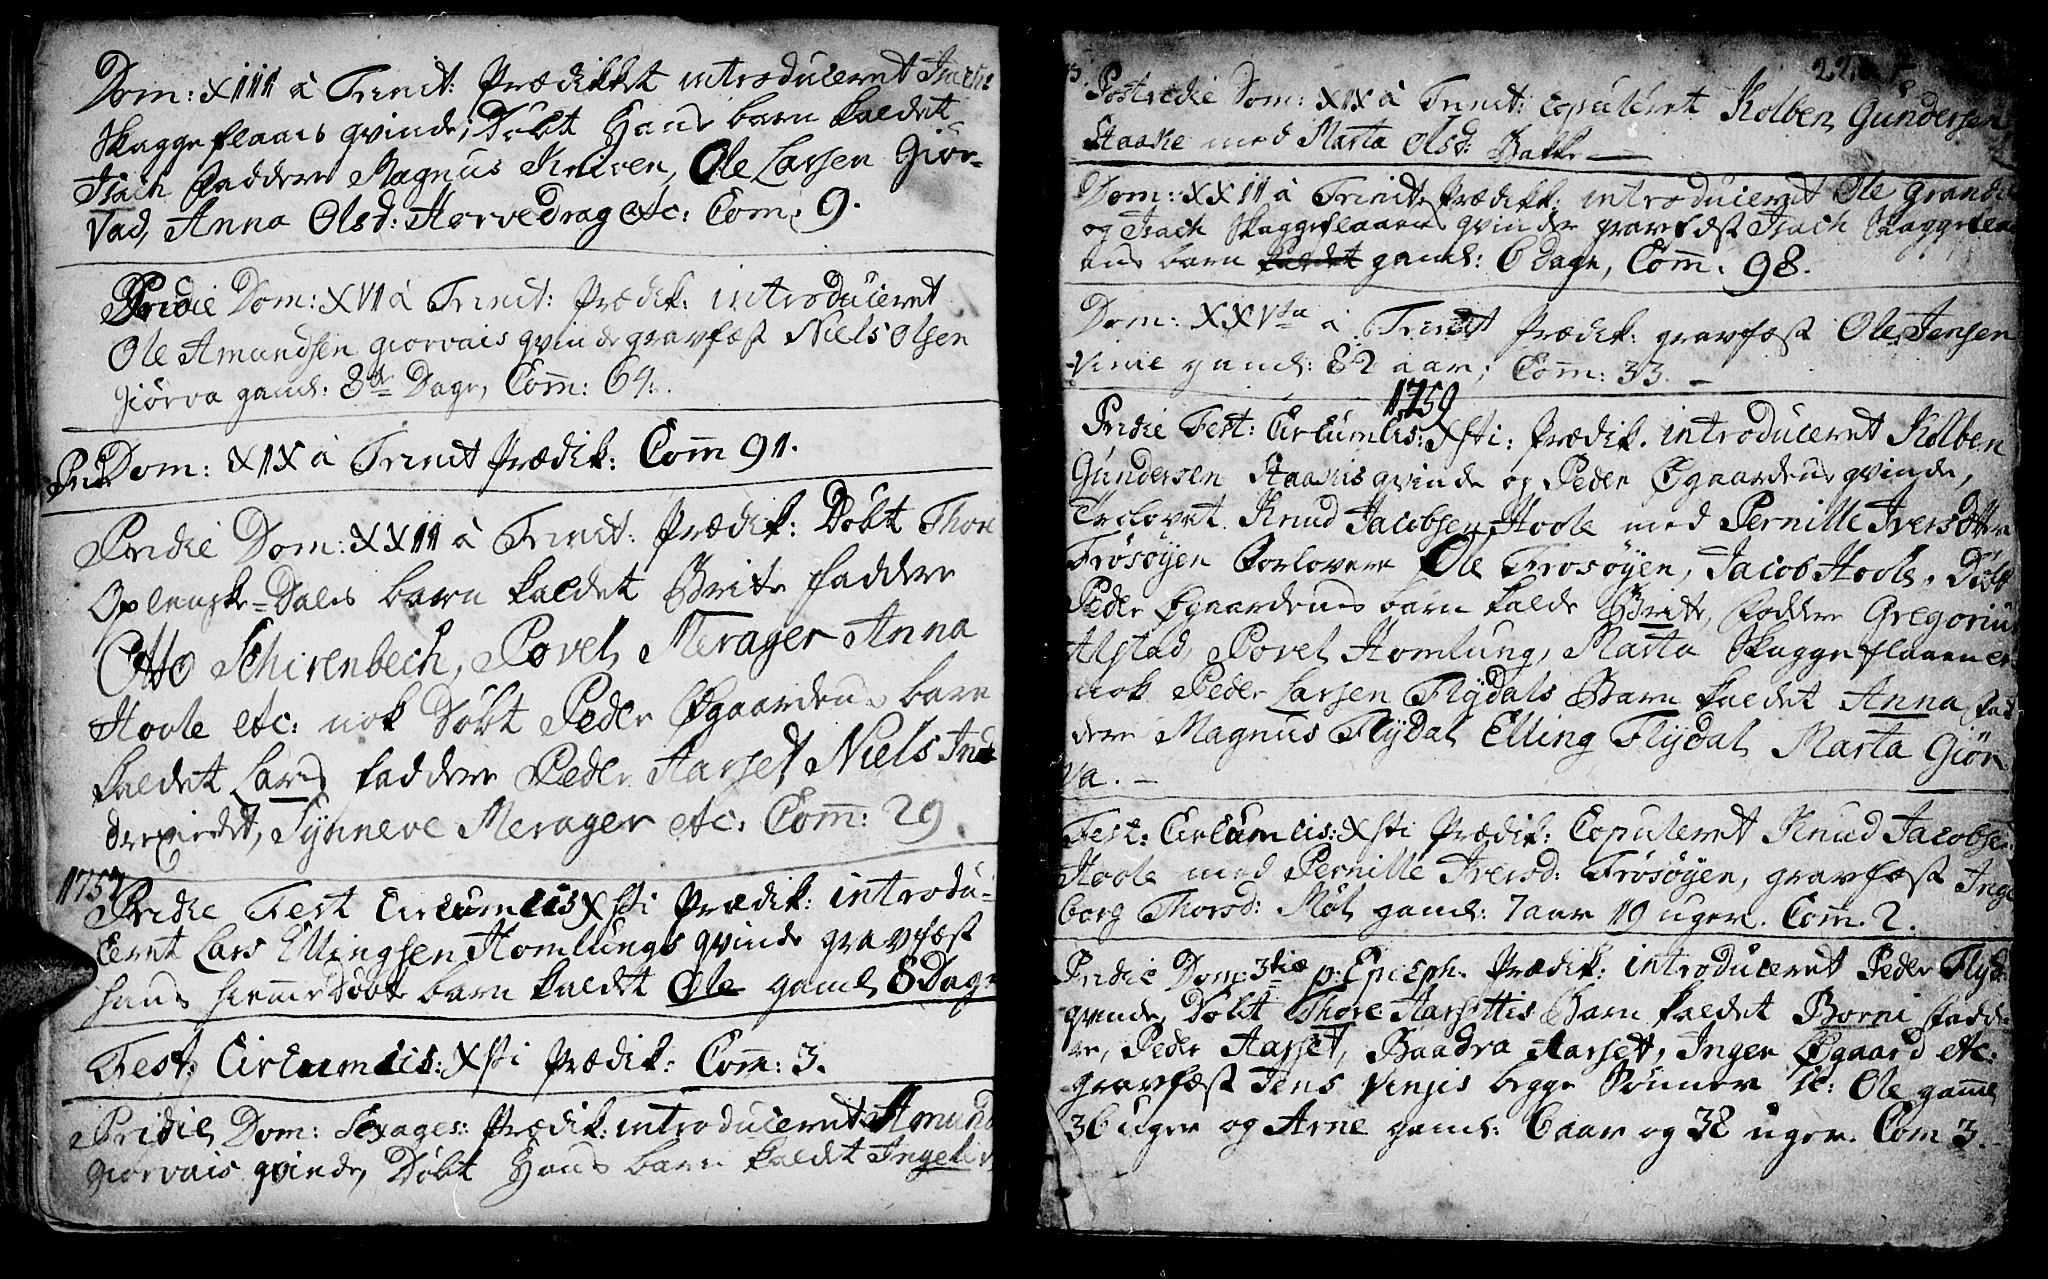 Dom: XIIII à Trinit: Prædikket introduceret Isachs
Skaggeflaaes qvinde, Döbt Hans barn kaldet
Isach Faddere Magnus Kniven, Ole Larsen Giör-
vad, Anna Olsd: Horvedrag etc: Com: 9.
Pridie Dom: XVII à Trinit: Prædik: introduceret
Ole Amundsen giorvais qvinde gravfæst Niels Olsen
Giörva gaml: 8te Dage, Com̄: 64.
Prid: Dom: XIX à Trinit Prædik: Com̄ 91.
Pridie Dom: XXIII à Trinit: Prædik: Döbt Thore
Oplenske-Dales barn kaldet Brite Faddere
Otto Schirenbech, Povel Merager Anna
Hoole etc: nok Döbt Peder Øgaardens barn
kaldet Lars Faddere Peder Aarset Niels Ind
Synneve Merager etc: Com̄: 29.
175
Pridie Fest Circumcis Xsti Prædik: introdu-
ceret Lars Ellingsen Homlungs qvinde gravfæst
hans hiemmedöbte barn kaldet Ole gaml 8 Dage
Fest: Circumcis: Xsti Prædik: Com̄: 3.
Pridie Dom: Sexages: Prædik: introduceret Amund
Giorvais qvinde, Döbt Hans barn kaldet Ingebor
22
Postridie Dom: XIX à Trinit: Copuleret Kolben Gundersen
Staake med Marta Olsd: Bakke
Dom: XXIII à Trinit: Prædik: introduceret Ole Grande
og Isach Skaggeflaaens qvinder gravfæst Isach Skaggeflaa
ens barn kaldet gaml: 6 Dage, Com̄: 98.
Dom: XXVta à Trinit Prædik: gravfæst Ole Jensen
Vinie gaml: 82 aar; Com̄: 33.
1759
Pridie Fest: Circumcis: Xsti: Prædik. introduceret Kolben
Gundersen Staakis qvinde og Peder Øgaardens qvinde,
Trolovet Knud Jacobsen Hoole med Pernille Iversdtter
Frösöyen Forlovere Ole Frosöyen, Jacob Hoole, Döbt
Peder Øgaardens barn kalde Brite, Faddere Gregorius
Alstad, Povel Homlung, Marta Skaggeflaaen etc
nok Peder Larsen Flydals Barn kaldet Anna Fad
dere Magnus Flydal Elling Flydal Marta Giör
va.
Fest: Circumcis: Xsti Prædik: Copuleret Knud Jacobsen
Hoole med Pernille Iversd: Frösöyen, gravfæst Inge
borg Thorsd: Möl gaml: 7 aar 19 uger. Com̄. 2.
Pridie Dom: 3tiæ p: Epiph. Prædik: introduceret Peder Flyd
qvinde, Döbt Thore Aarsettis Barn kaldet Borni Fadde
re, Peder Aarset, Baadra Aarset, Inger Øgaard etc:
gravfæst Jens Vinjis begge Sönner sc: Ole gaml
36 uger og Arne gaml: 6 aar og 38 uger. Com 3.